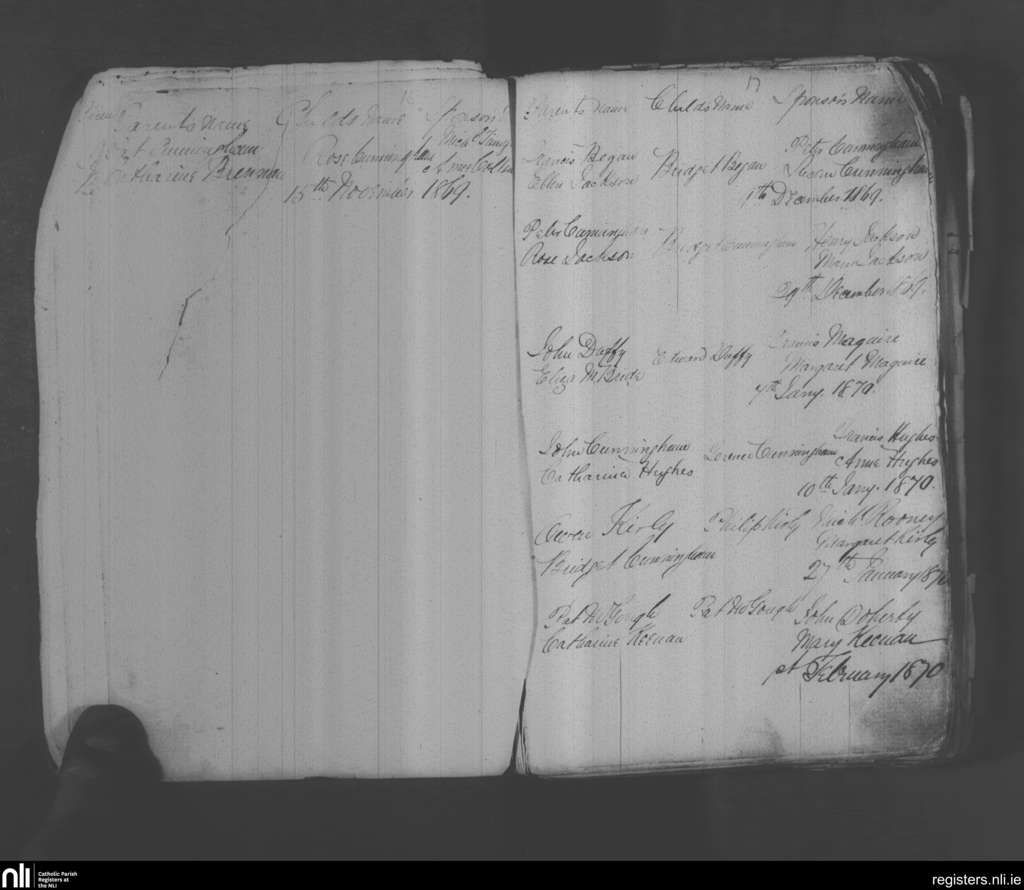 16
Parents name Childs name Sponsors
Cunningham Rose Cunningham
Catharine Brennan Anne
15th November 1869.
17
Parents name Childs Name Sponsors Name
Francis Began Bridget Began Peter Cunningham
Ellen Jackson Cunningham
December 1869.
Peter Cunningham Bridget Cunningham Henry Jackson
Rose Jackson Jackson
29th December 1869.
John Duffy Edward Duffy Francis Maguire
Eliza McBride Margaret Maguire
7th Jany. 1870.
John Cunningham Cunningham Francis Hughes
Catharine Hughes Anne Hughes
10th Jany. 1870.
Owen Kirly Philip Kirly Rooney
Bridget Cunningham Margaret Kirly
27th January 1870
Pat McGough Pat McGough John Doherty
Catharine Keenan Mary Keenan
February 1870
nli
Catholic Parish
Registers at
the NLI
registers.nli.ie